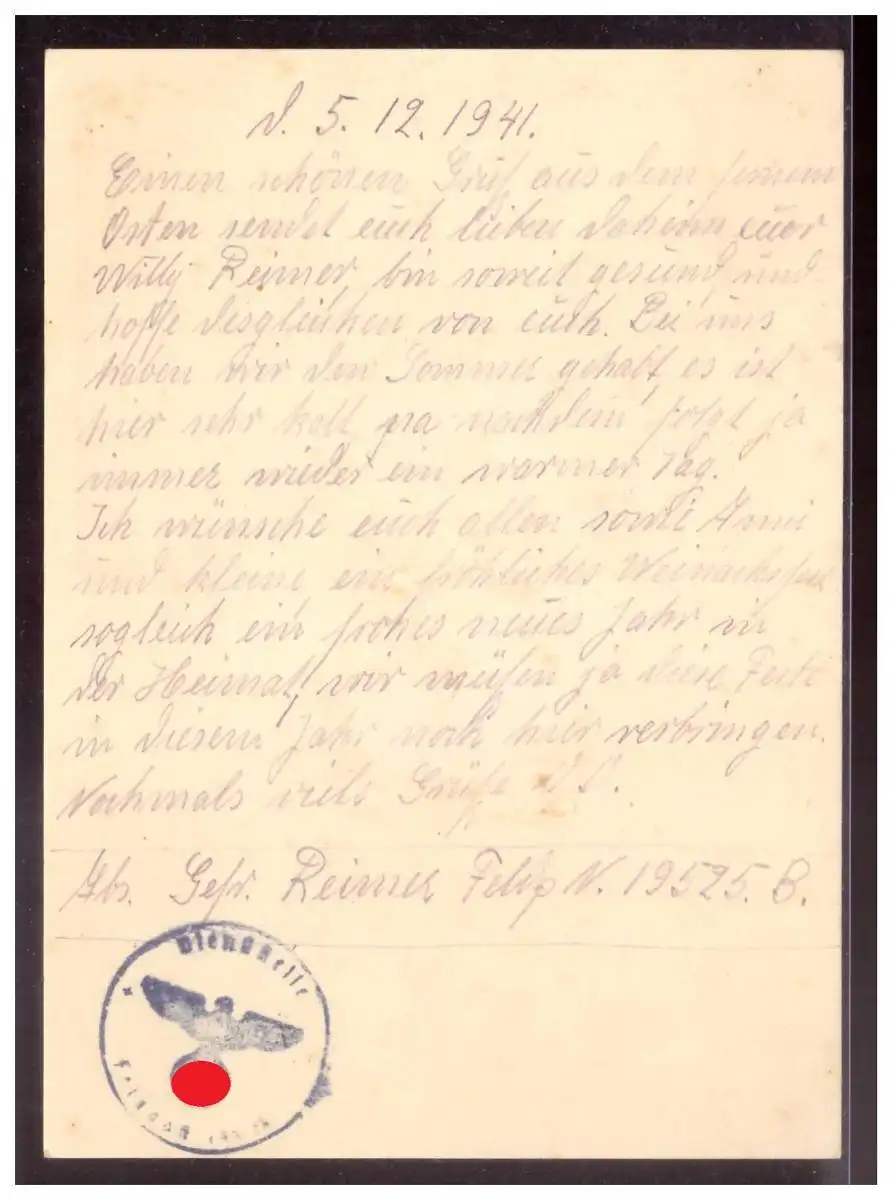 d. 5. 12. 1941.
Einen schönen Gruß aus dem fernem
Osten sendet euch lieben daheim euer
Willy Reimer, bin soweit gesund und
hoffe desgleichen von euch. Bei uns
haben wir den Sommer gehabt, es ist
hier sehr kalt, na nachdem folgt ja
immer wieder ein warmer Tag.
Ich wünsche euch allen sowie
und kleine ein fröhliches Weinachsfest
sogleich ein frohes neues Jahr in
der Heimat, wir müßen ja diese Feste
in diesem Jahr noch hier verbringen.
Nochmals viele Grüße
Abs. Gefr. Reimer Feldp N. 19525. B.
Dienststelle
Feldpost